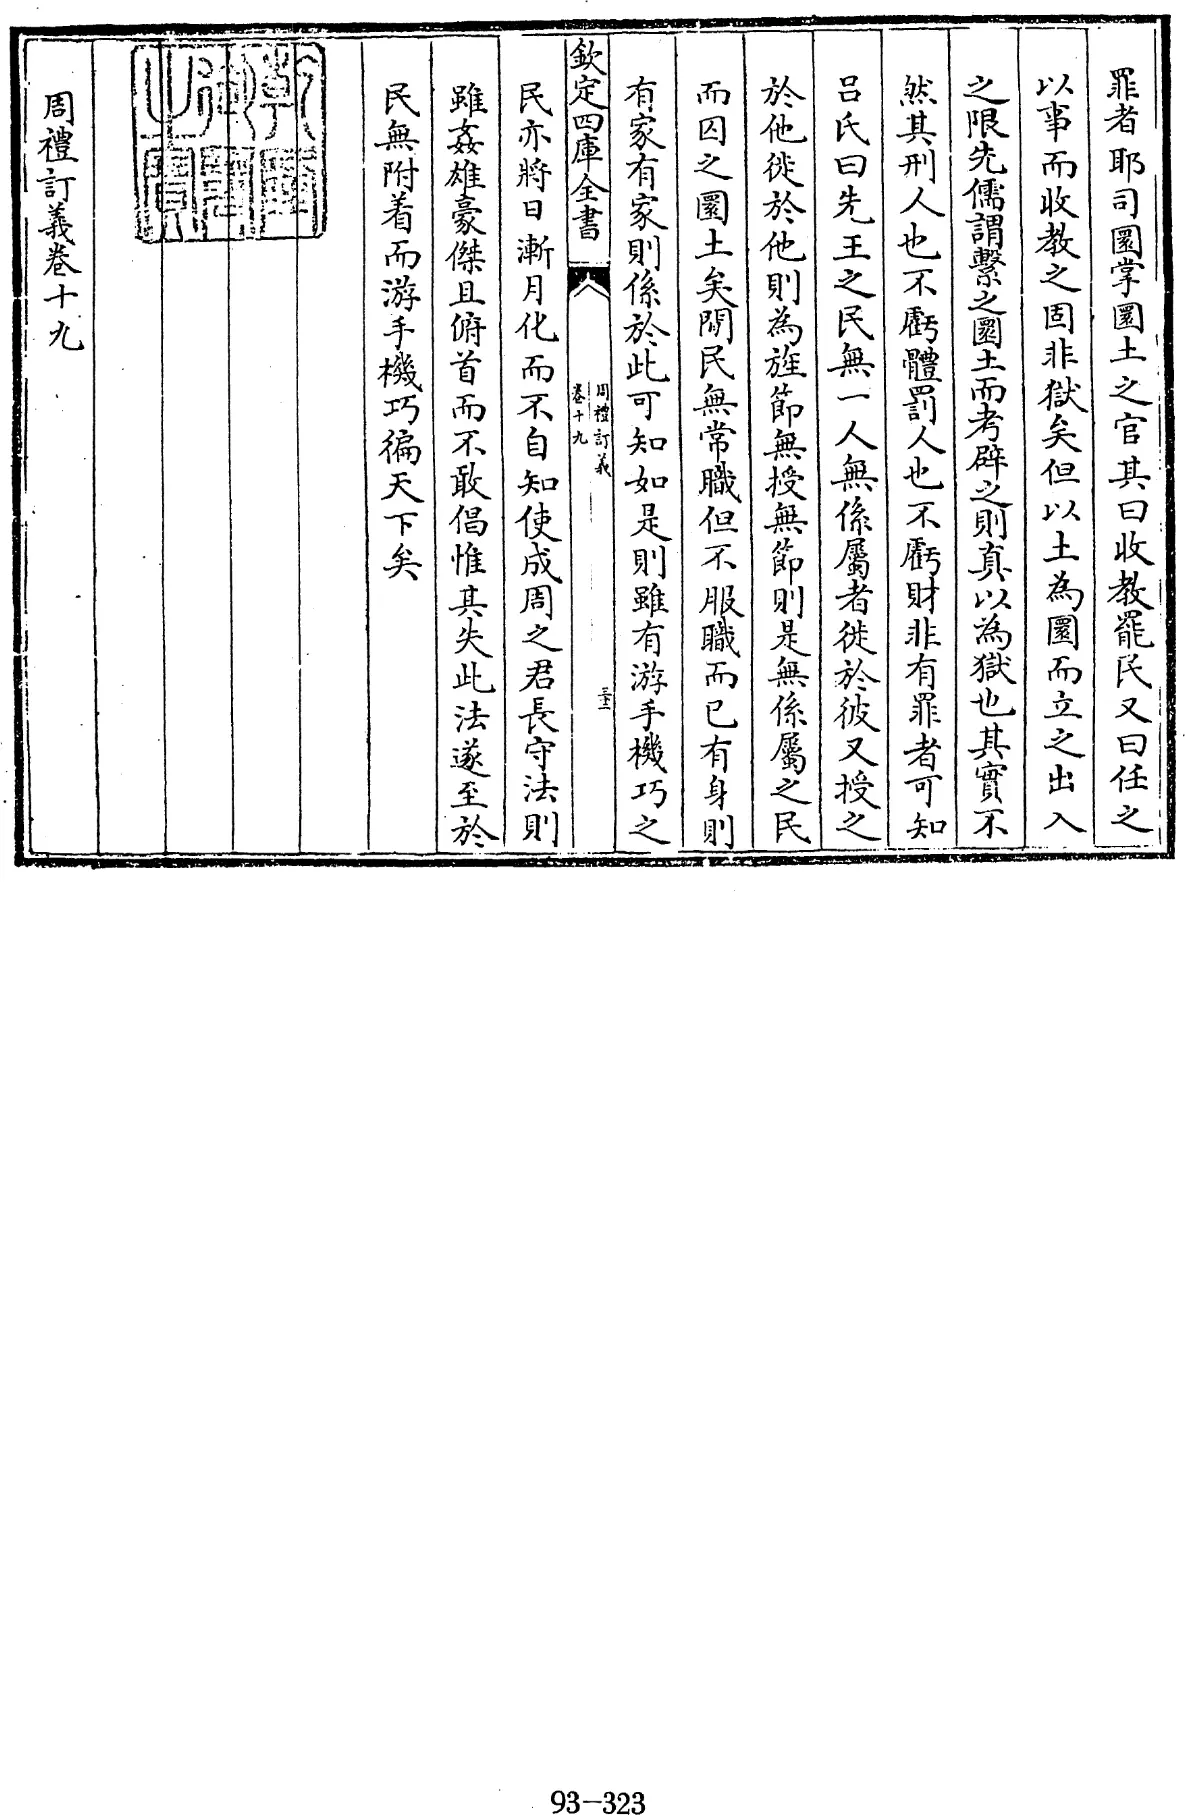 罪者耶司圜掌圜土之官其曰收教罷民又曰任之
以事而收教之固非獄矣但以土為圜而立之出入
之限先儒謂繫之圜土而考辟之則真以為獄也其實不
然其刑人也不虧體罰人也不虧財非有罪者可知
呂氏曰先王之民無一人無係屬者徙於彼又授之
於他徙於他則為旌節無授無節則是無係屬之民
而囚之圜土矣閒民無常職但不服職而已有身則
有家有家則係於此可知如是則雖有游手機巧之
欽定四庫全書
周禮訂義
卷十九
三十二
民亦將日漸月化而不自知使成周之君長守法則
雖姦雄豪傑且俯首而不敢倡惟其失此法遂至於
民無附着而游手機巧徧天下矣
周禮訂義卷十九
93-323